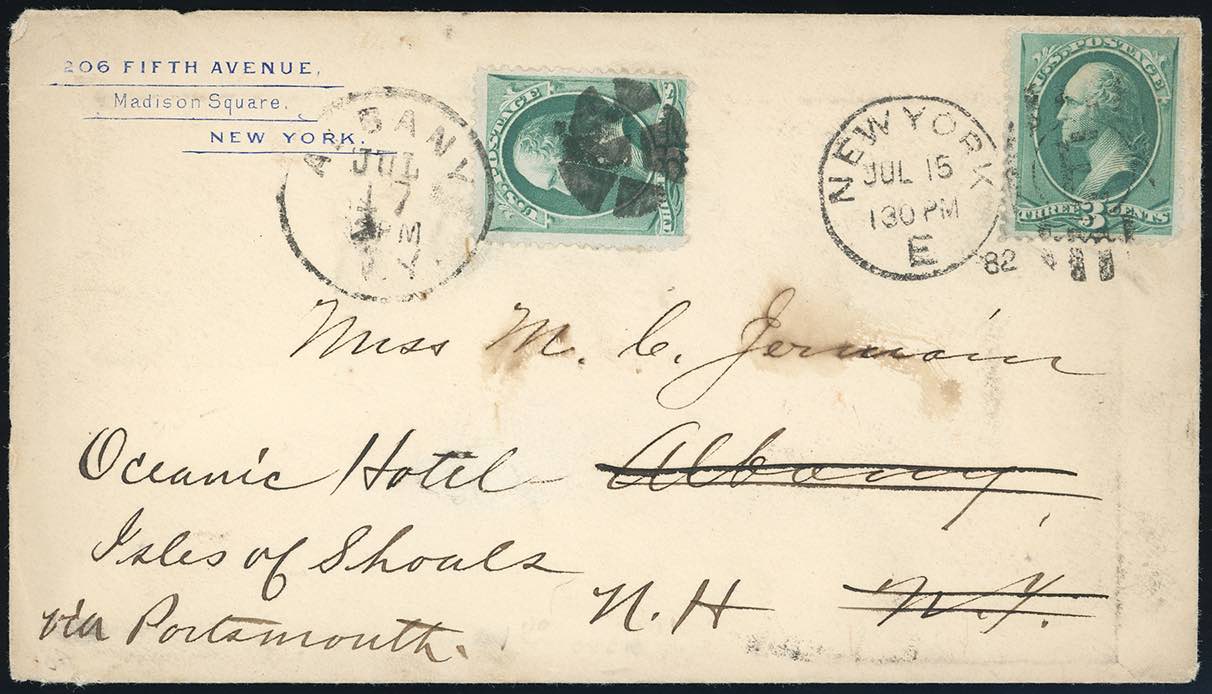 206 FIFTH AVENUE,
Madison Square.
NEW YORK.
ALBANY
JUL
17
PM
N.Y.
U.S. POSTAGE
NEW YORK
JUL 15
130 PM
E
82
U.S. POSTAGE
THREE 3 CENTS
Miss M. C. Jermain
Oceanic Hotel Albany
Isles of Shoals
N.H N.Y.
via Portsmouth.